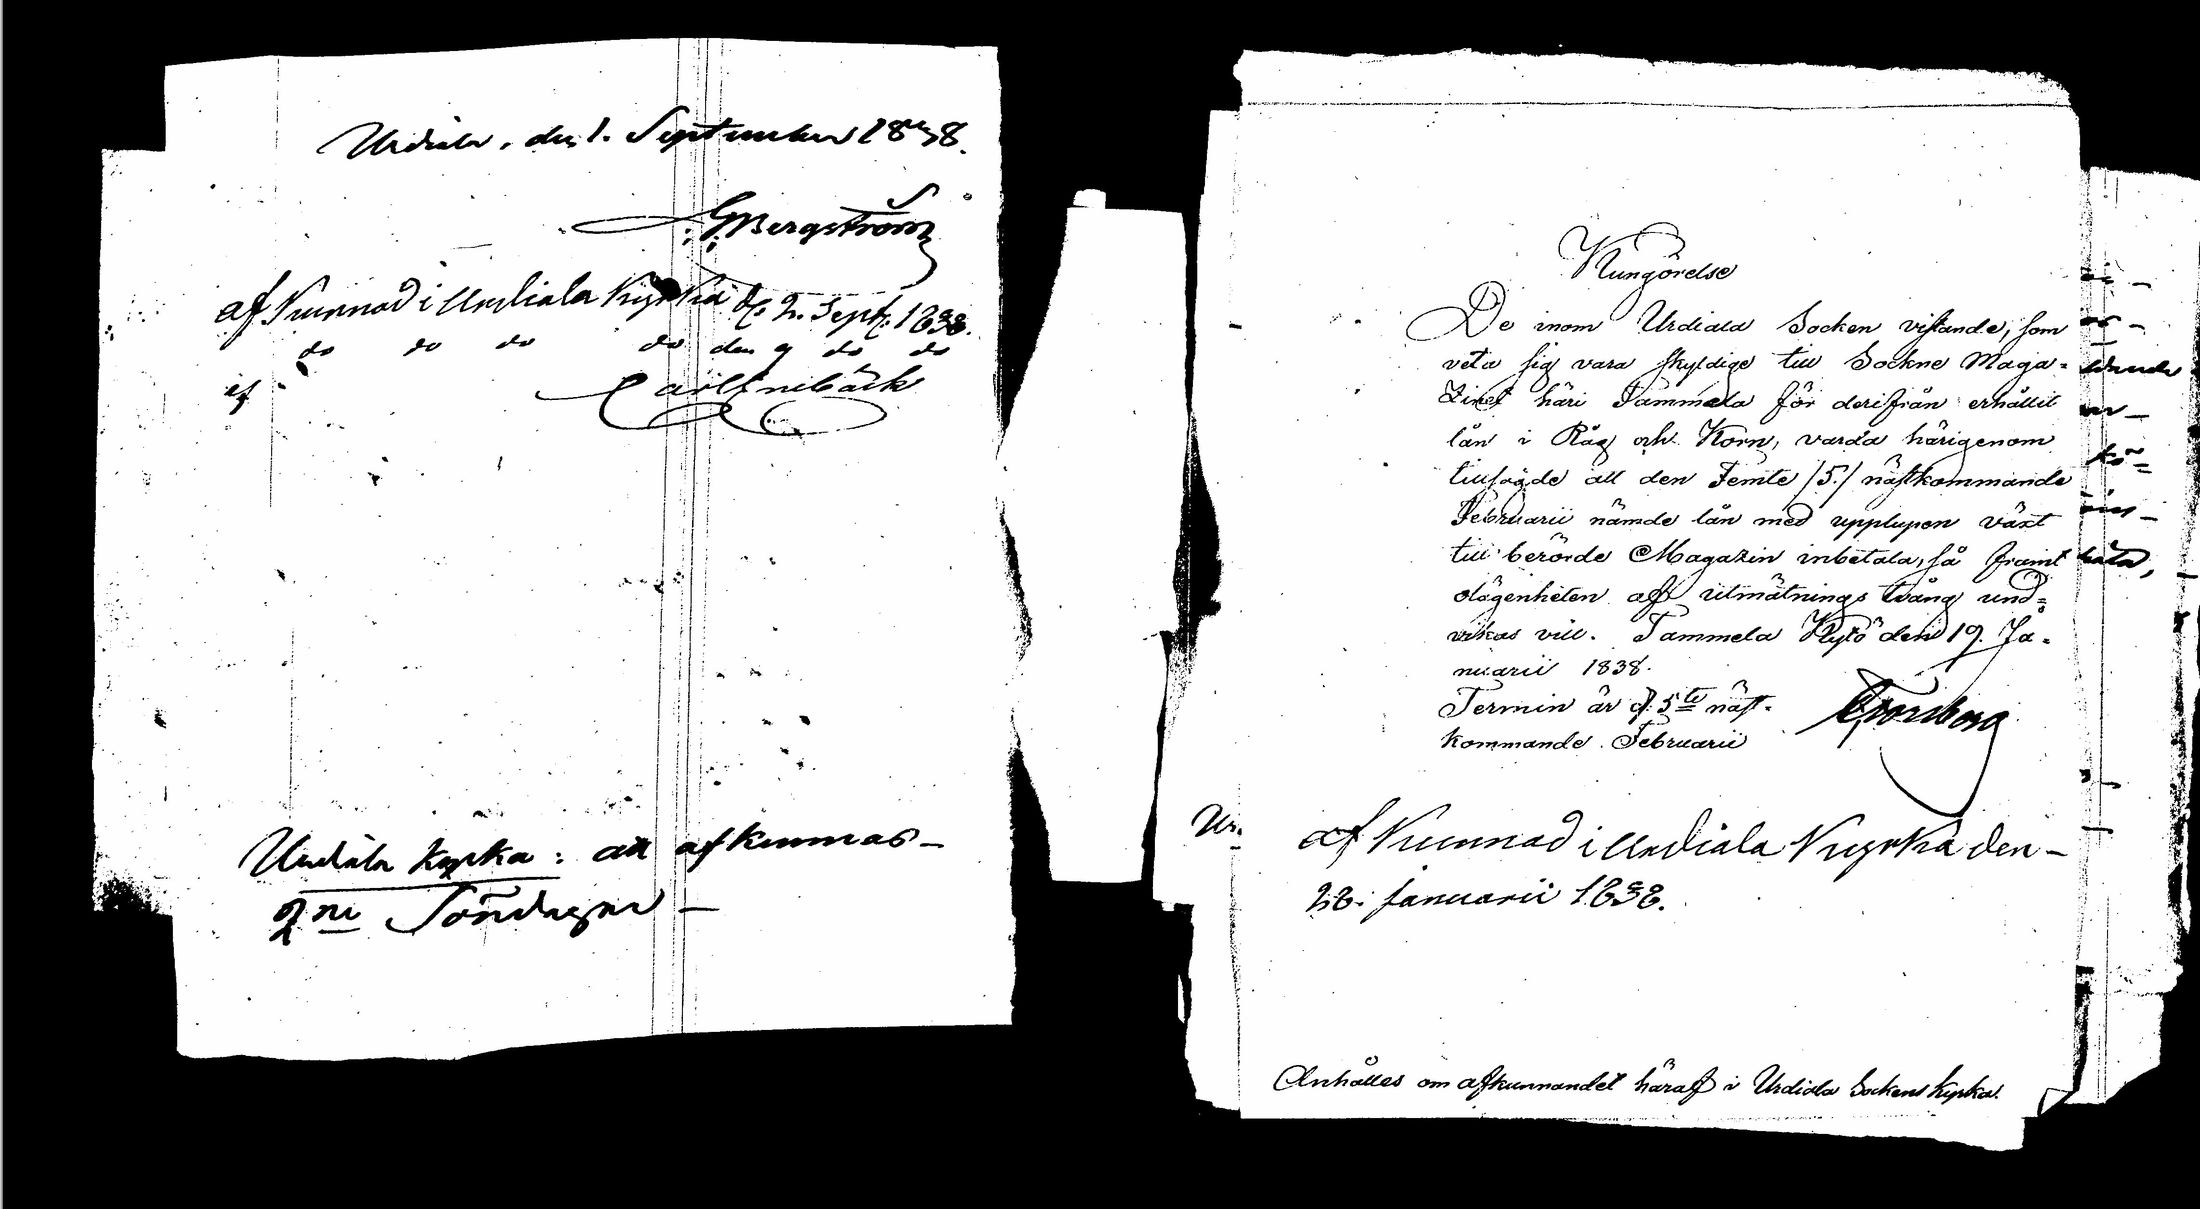 Urdiala, den 1. September 1838.
Bergström
afkunnad i Urdiala Kyrka d. 2. Sept. 1838.
do do do do den 9 do do
af Carl Enebäck
Urdiala kyrka: att afkunnas –
2ne Söndagar –
Kungörelse
De inom Urdiala Socken vistande, som
veta sig vara skyldige till Sockne Maga=
Zinet häri Tammela för derifrån erhållit
lån i Råg och Korn, varda härigenom
tillsagde att den Femte /5./ nästkommande
Februarii nämde lån med upplupen växt
till berörde Magazin inbetala, så framt
olägenheten af utmätnings tvång und=
vikas vill. Tammela Kytö den 19. Ja=
nuarii 1838.
Termin är d. 5te näst=
kommande Februarii
afkunnad i Urdiala Kyrka den –
28. januarii 1838.
Anhålles om afkunnandet häraf i Urdiala Sockens kyrka.